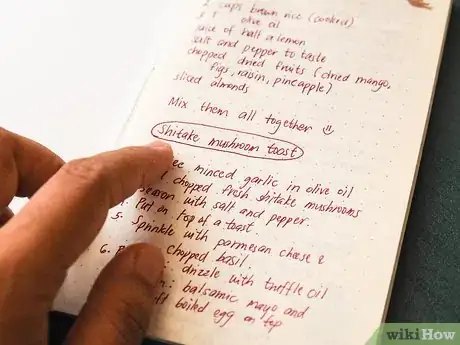 cups brown rice (cooked)
olive oil
juice of half a lemon
salt and pepper to taste
chopped dried fruits (dried mango,
figs, raisin, pineapple)
sliced almonds
Mix them all together
Shitake mushroom toast
minced garlic in olive oil
chopped fresh shitake mushrooms
season with salt and pepper.
Put on top of a toast.
5. Sprinkle with parmesan cheese &
6. chopped basil.
drizzle with truffle oil
balsamic mayo and
boiled egg on top
wikiHow